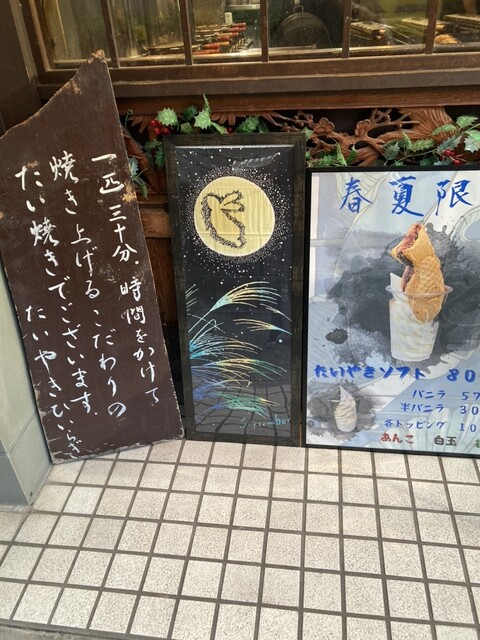 一匹三十分、時間をかけて
焼き上げるこだわりの
たい焼きでございます。
たいやきひいらぎ
春夏限
たいやきソフト 80
バニラ 57
半バニラ 30
各トッピング 10
あんこ 白玉